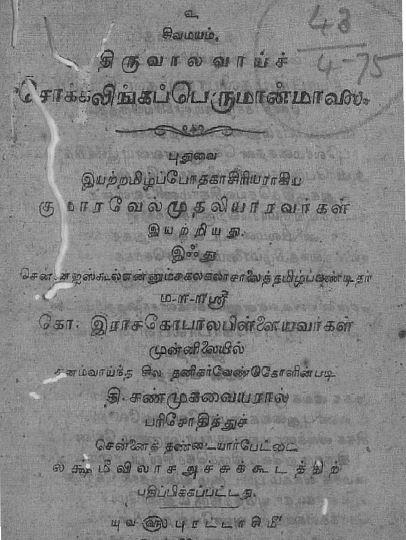 உ
சிவமயம்.
திருவாலவாய்ச்
சொக்கலிங்கப்பெருமான்மாலை
புதுவை
இயற்றமிழ்ப்போதகாசிரியராகிய
குமாரவேல்முதலியாரவர்கள்
இயற்றியது.
இஃது
சென்னைஐஸ்கூல்என்னுஞ்சகலகலாசாலைத்தமிழ்ப்பண்டிதர்
ம-ா-ா-ஸ்ரீ
கோ. இராசகோபாலபிள்ளையவர்கள்
முன்னிலையில்
தனம்வாய்ந்த சில தனிகர்வேண்கோளின்படி
தி. சண்முகவையரால்
பரிசோதித்துச்
சென்னைத் தண்டையார்பேட்டை
லக்ஷ்மீவிலாசஅச்சுக்கூடத்திற்
பதிப்பிக்கப்பட்டது.
யுவ௵ புரட்டாசி௴
43
4-75